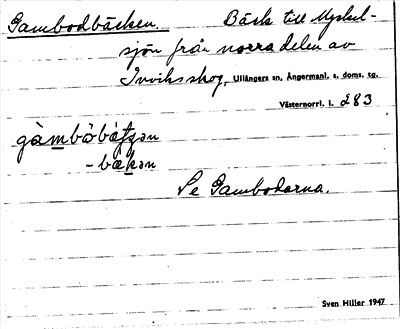 Gambodbäcken. Bäck till Myckel-
sjön från norra delen av
Inviksskog, Ullångers sn, Ångermanl. s. doms. tg.
Västernorrl. l. 283
gàmbòbæ̀tʃən
-bækən
Se Gambodarna.
Sven Hiller 1947